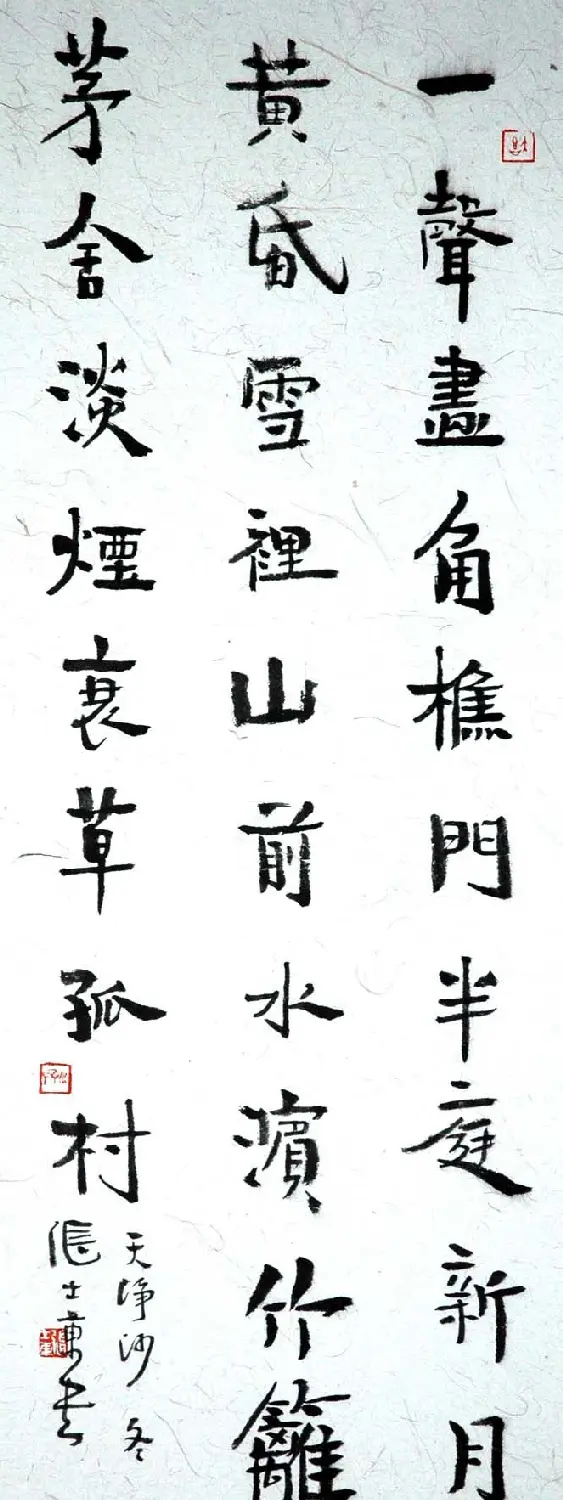 一聲畫角樵門半庭新月
黄昏雪裡山前水濱竹籬
茅舍淡煙衰草孤村
天净沙 冬
張士東書